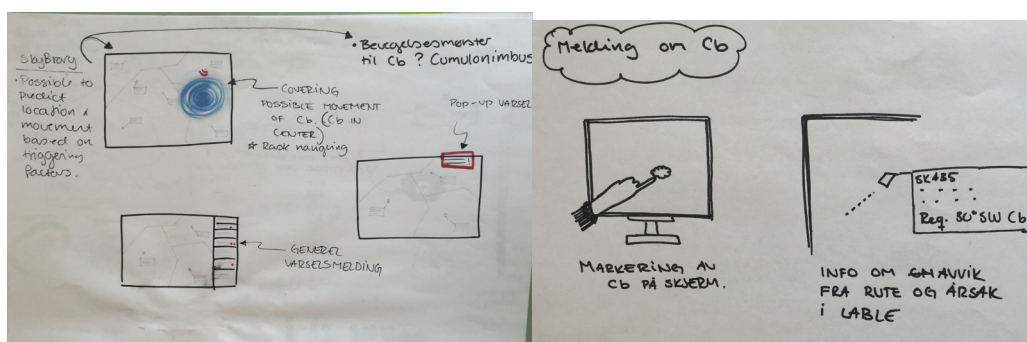 SkyBrary
• Possible to
predict
location &
movement
based on
triggering
factors.
• Bevegelsesmønster
til Cb ? Cumulonimbus
COVERING
POSSIBLE MOVEMENT
OF Cb. (Cb IN
CENTER)
POP-UP VARSEL
GENEREL
VARSELSMELDING
Melding om Cb
MARKERING AV
Cb PÅ SKJERM.
SK485
Req. 30° SW Cb
INFO OM AVVIK
FRA RUTE OG ÅRSAK
i LABLE